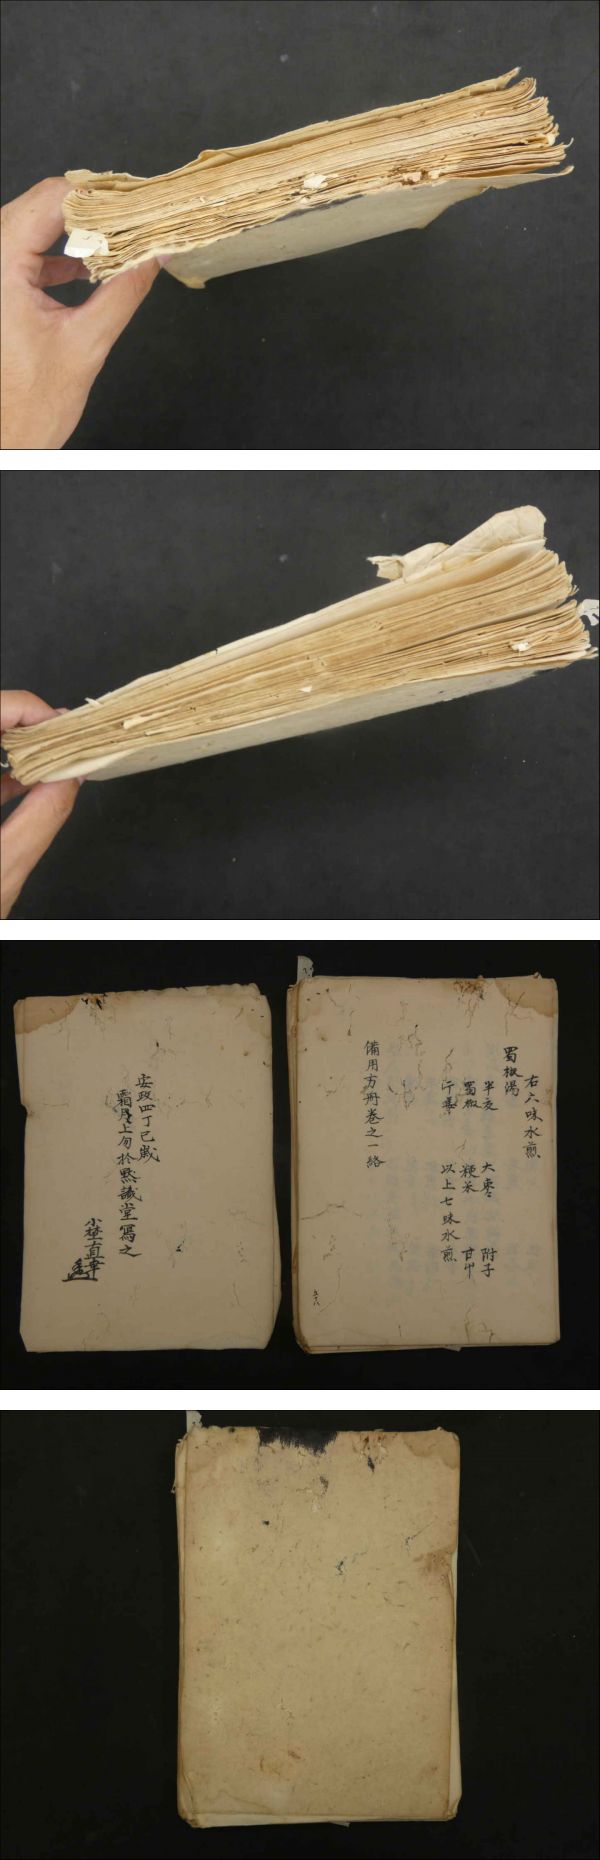 右六味水煎
蜀椒湯
半夏 大棗 附子
蜀椒 粳米 甘屮
以上七味水煎
備用方冊巻之一終
安政四丁巳歳
霜月上旬於黙識堂寫之
小埜直章